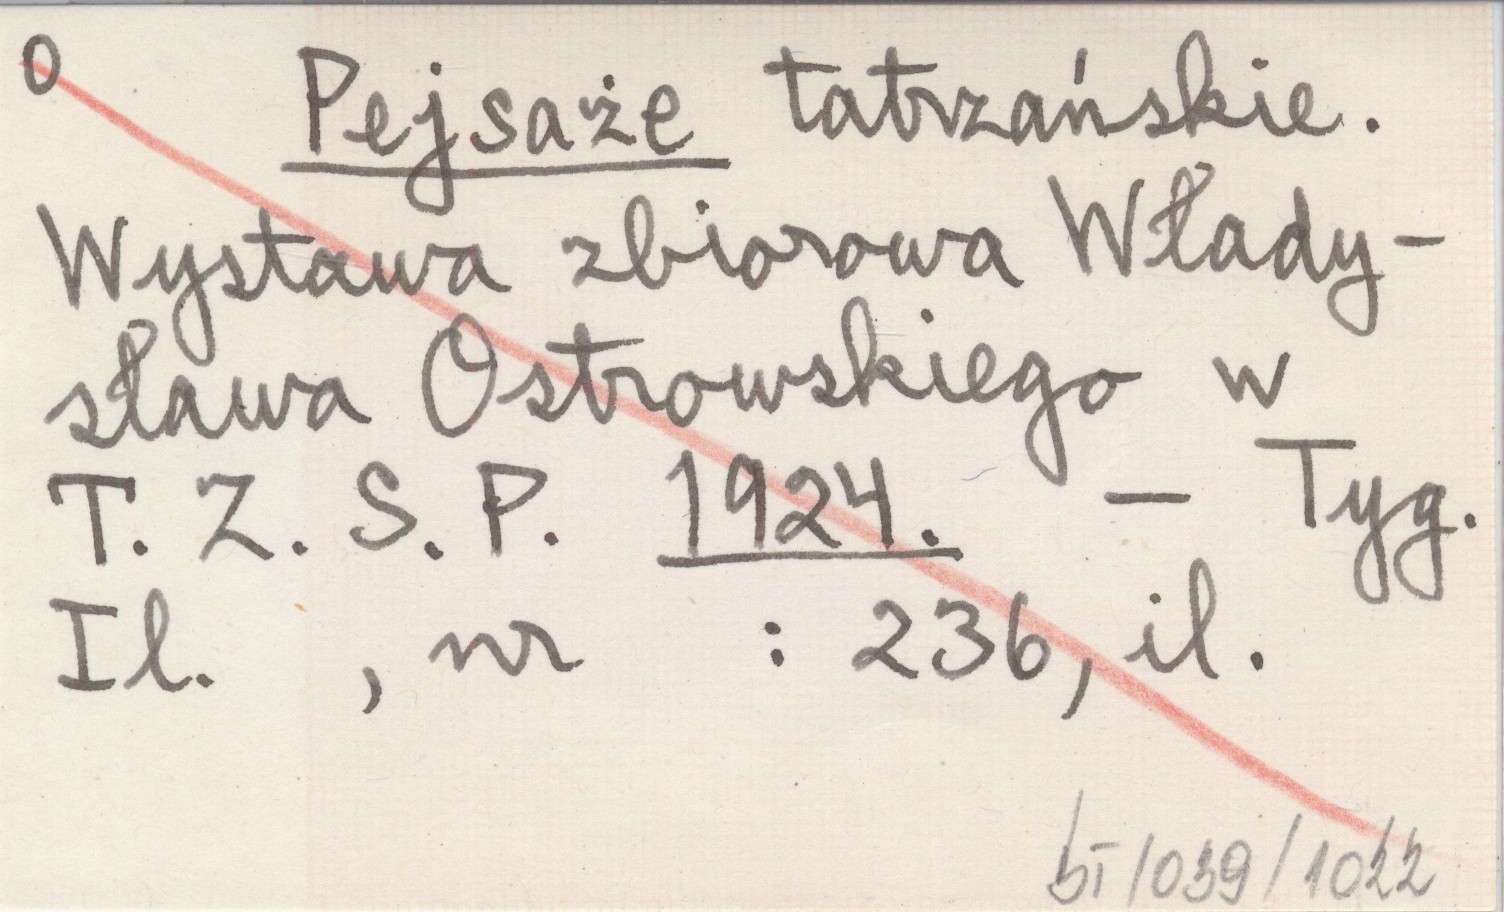 O Pejsaże tatrzańskie.
Wystawa zbiorowa Włady-
sława Ostrowskiego w
T. Z. S. P. 1924. — Tyg.
Il. , nr : 236, il.
bI/039/1022